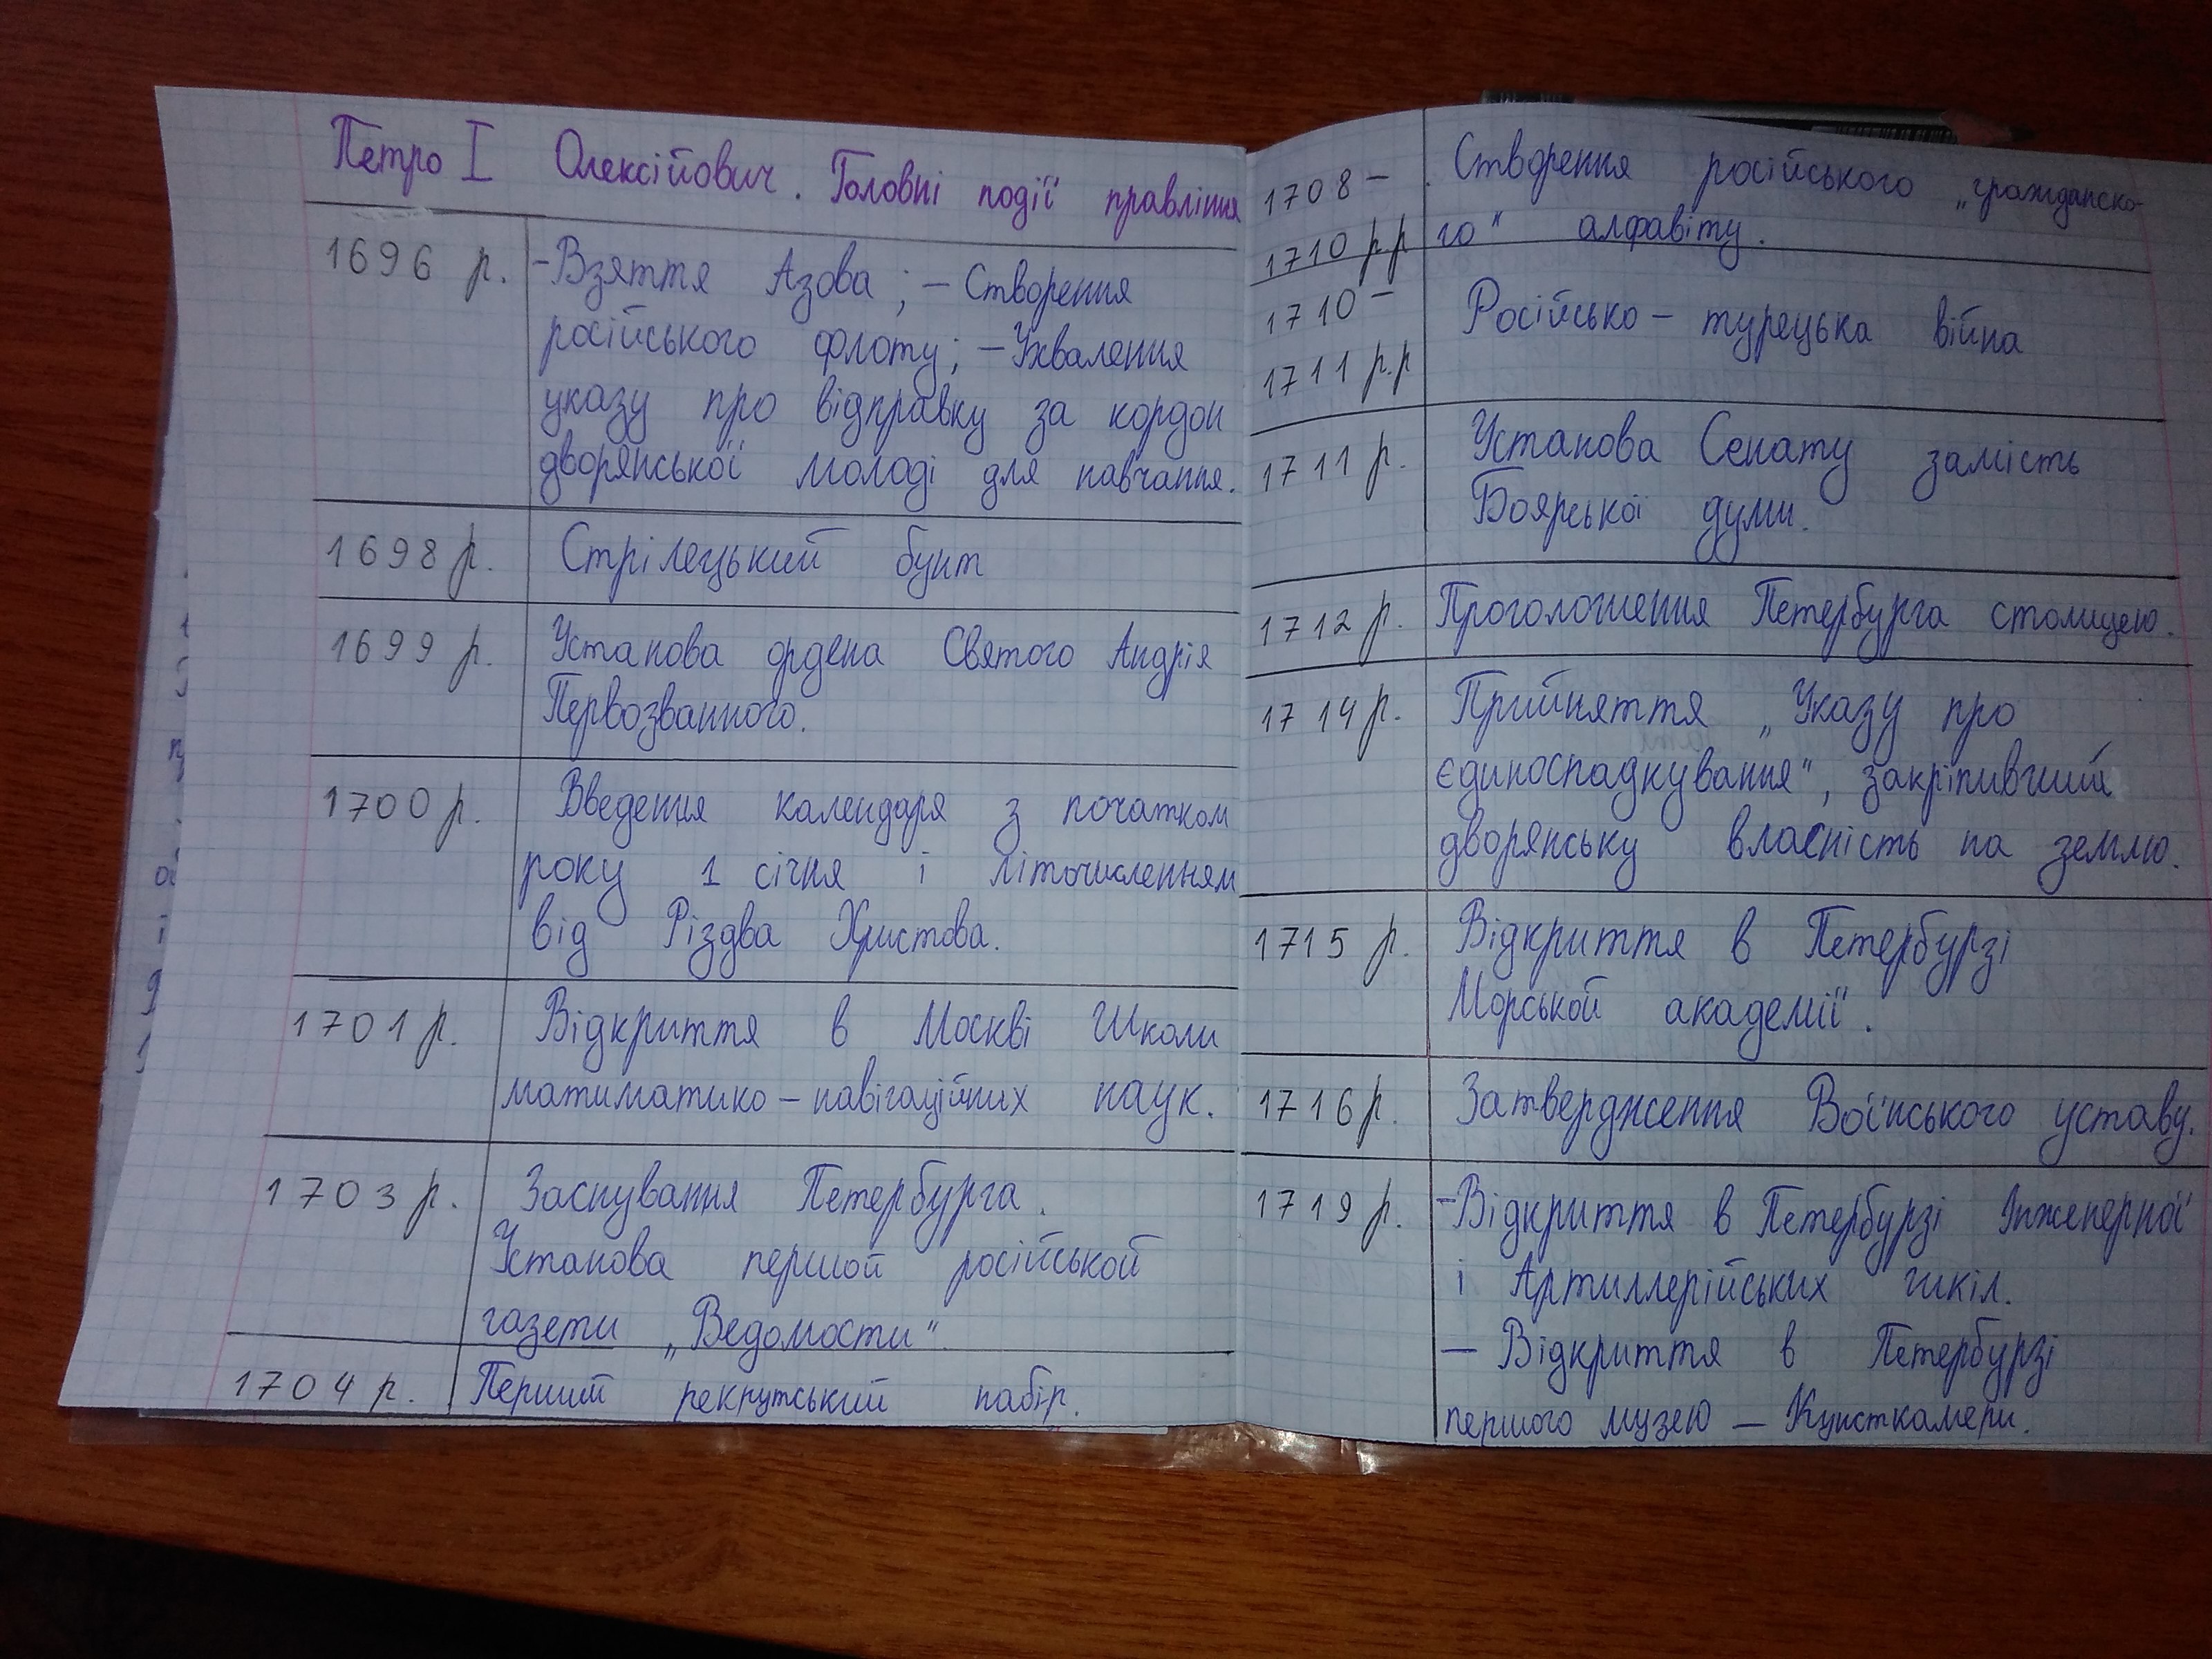 Петро I Олексійович. Головні події правління
1696 р. -Взяття Азова; - Створення
російського флоту; - Ухвалення
указу про відправку за кордон
дворянської молоді для навчання.
1698 р. Стрілецький бунт
1699 р. Установа ордена Святого Андрія
Первозванного.
1700 р. Введення календаря з початком
року 1 січня і літочисленням
від Різдва Христова.
1701 р. Відкриття в Москві Школи
матиматико - навігаційних наук.
1703 р. Заснування Петербурга.
Установа першой російськой
газети „Ведомости"
1704 р. Перший рекрутський набір.
1708 - Створення російського „гражданско-
1710 р.р го" алфавіту.
1710 - Російсько - турецька війна
1711 р.р
1711 р. Установа Сенату замість
Боярської думи.
1712 р. Проголошення Петербурга столицею.
1714 р. Прийняття „Указу про
єдиноспадкування", закріпивший
дворянську власність на землю.
1715 р. Відкриття в Петербурзі
Морськой академії.
1716 р. Затвердження Воїнського уставу.
1719 р. -Відкриття в Петербурзі Інженерної
і Артиллерійських шкіл.
- Відкриття в Петербурзі
першого музею - Кунсткамери.